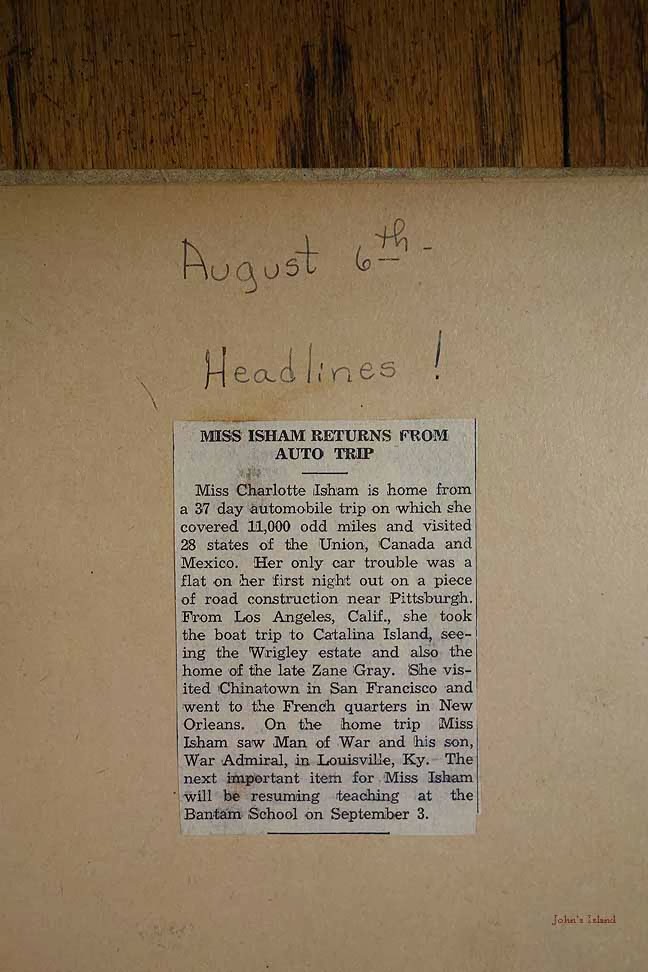 August 6th -
Headlines !
MISS ISHAM RETURNS FROM
AUTO TRIP
Miss Charlotte Isham is home from
a 37 day automobile trip on which she
covered 11,000 odd miles and visited
28 states of the Union, Canada and
Mexico. Her only car trouble was a
flat on her first night out on a piece
of road construction near Pittsburgh.
From Los Angeles, Calif., she took
the boat trip to Catalina Island, see-
ing the Wrigley estate and also the
home of the late Zane Gray. She vis-
ited Chinatown in San Francisco and
went to the French quarters in New
Orleans. On the home trip Miss
Isham saw Man of War and his son,
War Admiral, in Louisville, Ky. The
next important item for Miss Isham
will be resuming teaching at the
Bantam School on September 3.
John's Island